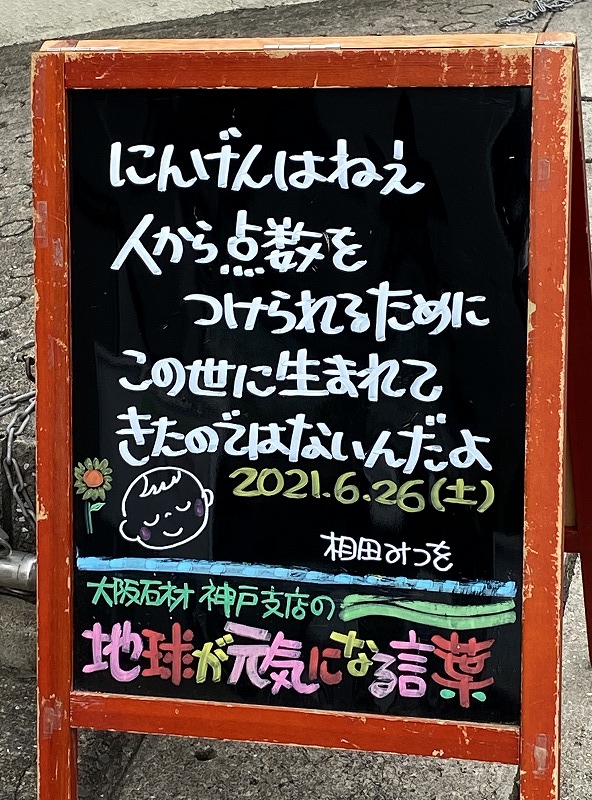 にんげんはねぇ
人から点数を
つけられるために
この世に生まれて
きたのではないんだよ
2021.6.26(土)
相田みつを
大阪石材 神戸支店の
地球が元気になる言葉